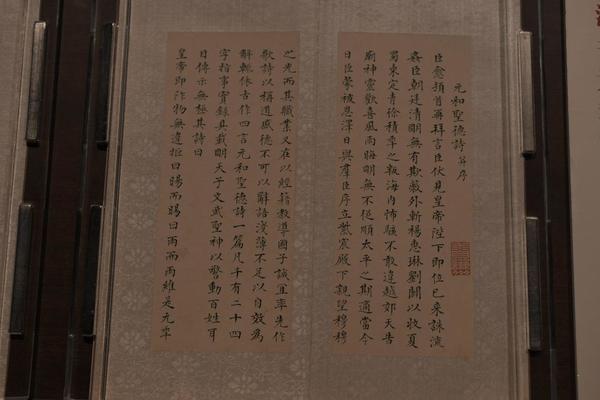 元和聖德詩 并序
臣愈頓首再拜言臣伏見皇帝陛下即位已來誅流
姦臣朝廷清明無有欺蔽外斬楊惠琳劉闢以收夏
蜀東定青徐積年之叛海內怖駭不敢違越郊天告
廟神靈歡喜風雨晦明無不從順太平之期適當今
日臣蒙被恩澤日與羣臣序立紫宸殿下親望穆穆
之光而其職業又在以經籍教導國子誠宜率先作
歌詩以稱道盛德不可以辭語淺薄不足以自效為
解輒依古作四言元和聖德詩一篇凡千有二十四
字指事實錄具載明天子文武聖神以警動百姓耳
目傳示無極其詩曰
皇帝即阼物無違拒曰暘而暘曰雨而雨維是元年